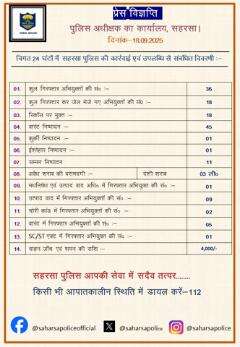 प्रेस विज्ञप्ति
पुलिस अधीक्षक का कार्यालय, सहरसा।
दिनांक-18.09.2025
विगत 24 घंटों में सहरसा पुलिस की कार्रवाई एवं उपलब्धि से संबंधित विवरणी :-
01. कुल गिरफ्तार अभियुक्तों की सं० :- 36
02. कुल गिरफ्तार कर जेल भेजे गए अभियुक्तों की सं० :- 18
03. रिकॉल पर मुक्त :- 18
04. वारंट निष्पादन :- 45
05. कुर्की निष्पादन :- 01
06. इश्तेहार निष्पादन :- 01
07. सम्मन निष्पादन :- 11
08. अवैध शराब की बरामदगी :- देशी शराब 03 ली०
09. गिरफ्तार अभियुक्तों की सं० :- 02
10. उत्पाद वाद में गिरफ्तार अभियुक्तों की सं० :- 09
11. चोरी कांड में गिरफ्तार अभियुक्तों की सं० :- 02
12. वारंट में गिरफ्तार अभियुक्तों की सं० :- 05
13. SC/ST एक्ट में गिरफ्तार अभियुक्तों की सं० :- 02
14. वाहन जाँच एवं शमन की राशि :- 4,000/-
सहरसा पुलिस आपकी सेवा में सदैव तत्पर......
किसी भी आपातकालीन स्थिति में डायल करें-112
@saharsapoliceofficial @saharsapolice @saharsapolice